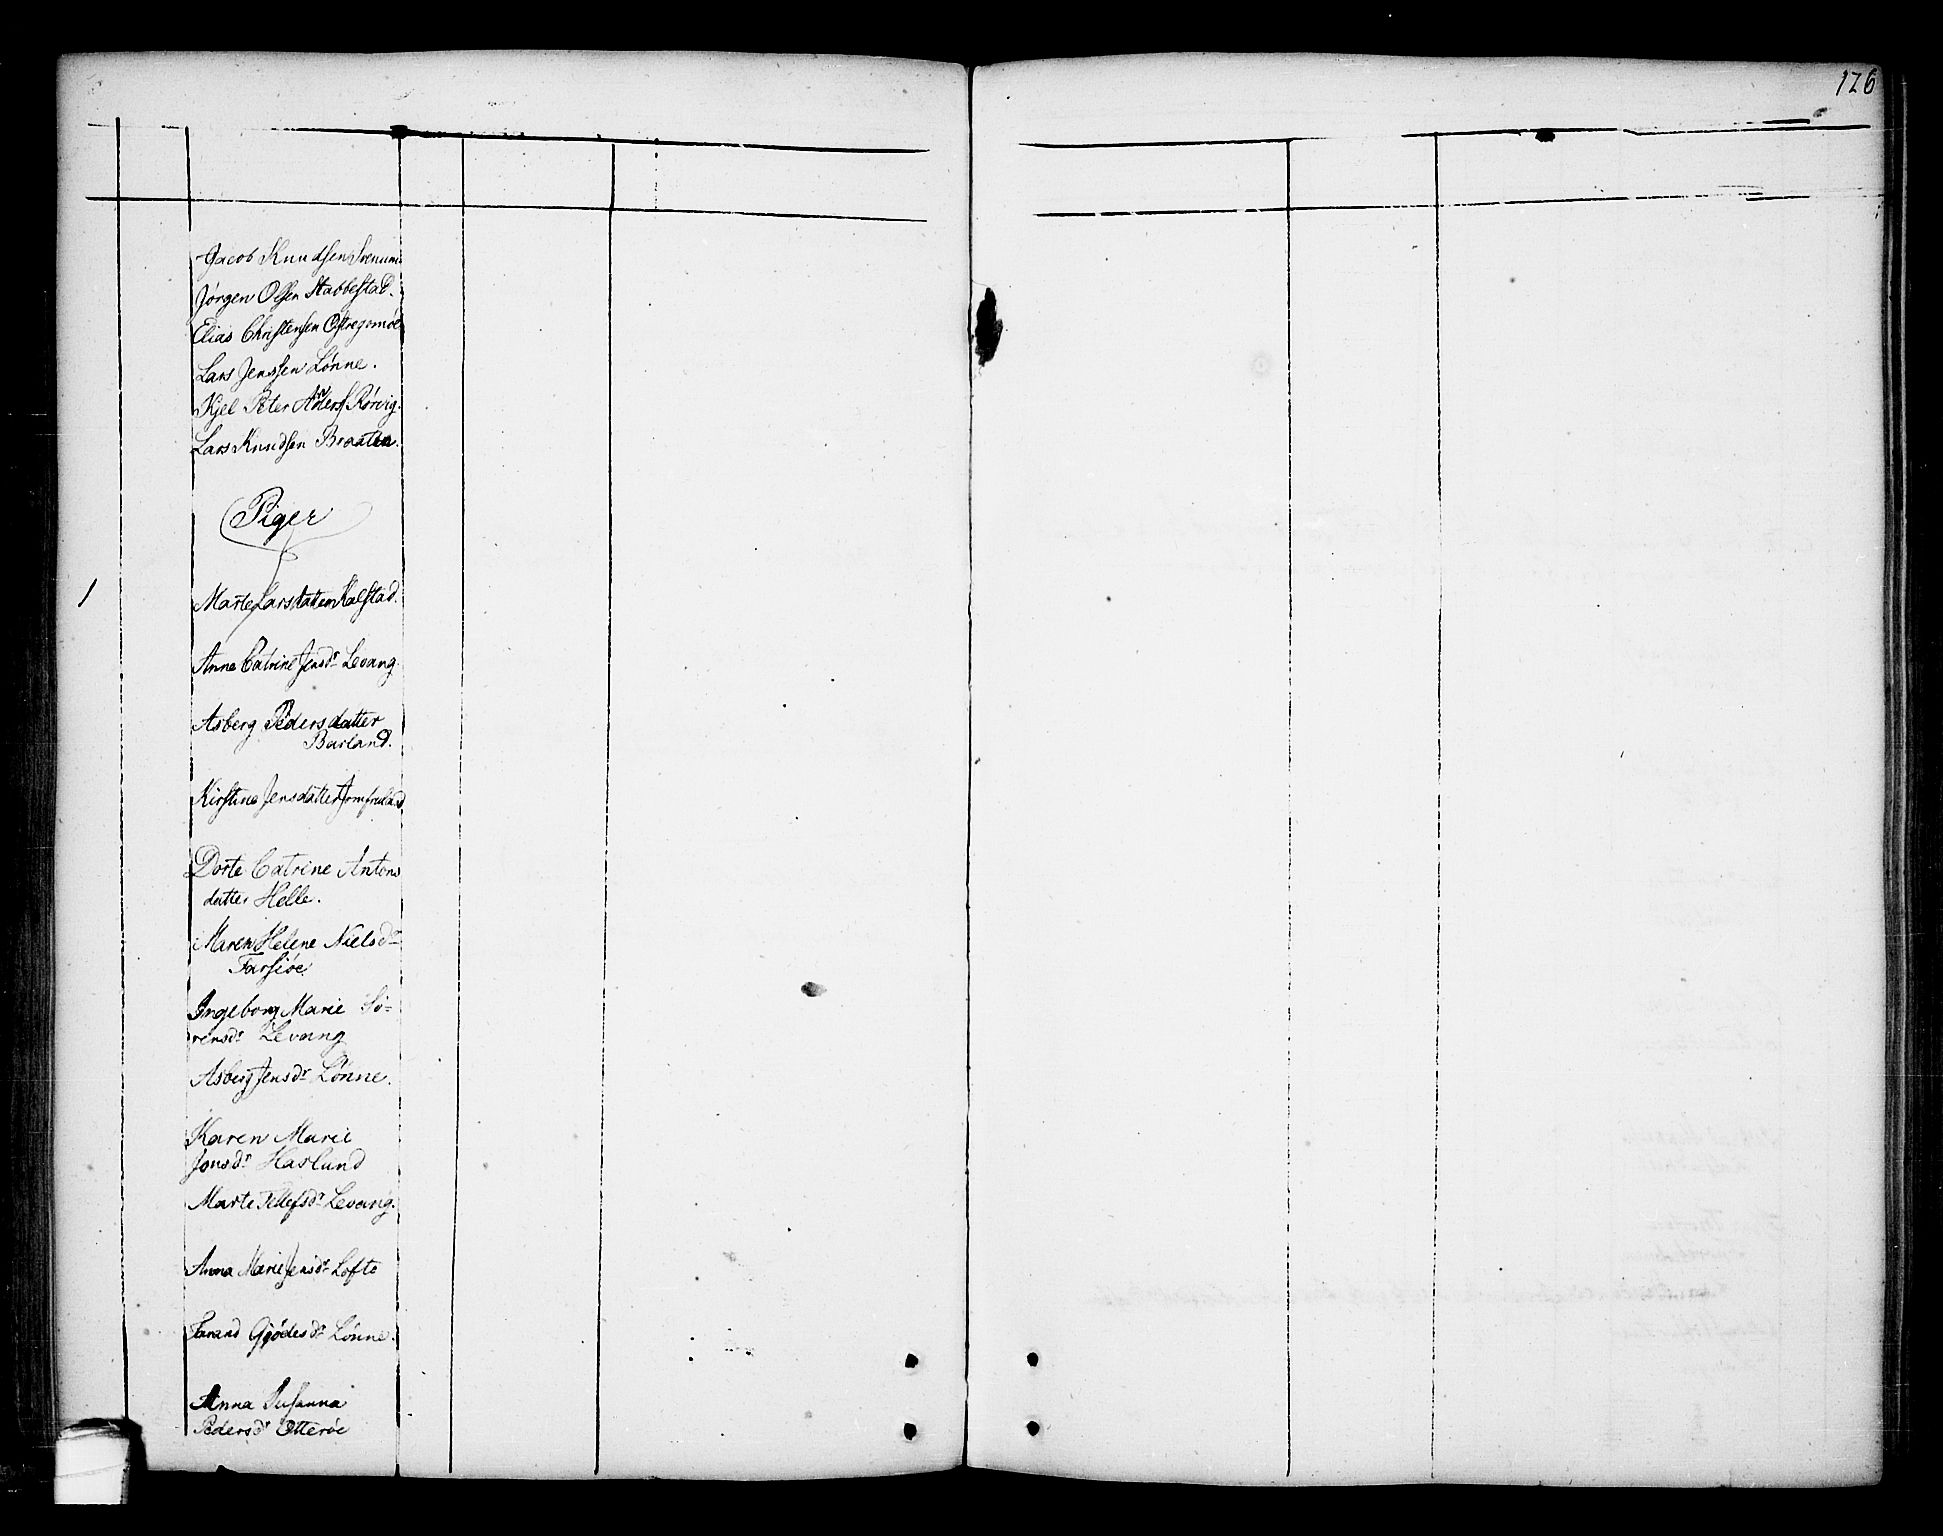 126
Jacob Knudsen Svenum
Jörgen Olsen Stabbestad.
Elias Christensen Östregomöe
Lars Jenssen Lönne.
Kjel Peter Anders. Rörvig.
Lars Knudsen Braaten.
Piger
1 Marte Larsdatten Kalstad.
Anne Catrine Jensdr Levang.
Asberg Pedersdatter
Barland.
Kirstine Jensdatter Jomfruland
Dorte Catrine Antons
datter Helle.
Maren Helene Nielsdr
Farsiöe
Ingeborg Marie Sö-
rensdr Levang
Asberg Jensdr Lönne.
Karen Marie
Jonsdr Haslund
Marte Tellefsdr Levang.
Anna Marie Jensdr Lofte
Tarand Gjödesdr Lönne.
Anna Susanna
Pedersdr Otteröe